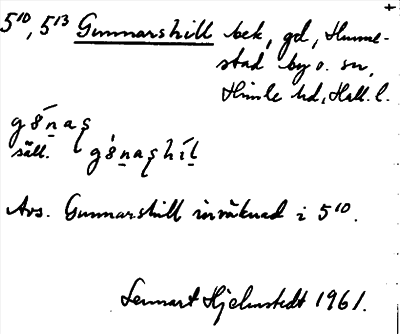 5¹⁰, 5¹³ Gunnarshill bek, gd, Humme-
stad by o. sn,
Himle hd, Hall. l.
gȣ́n̲aş
säll. gȣ̀n̲aşhíl̲
Avs. Gunnarshill inräknad i 5¹⁰.
Lennart Hjelmstedt 1961.